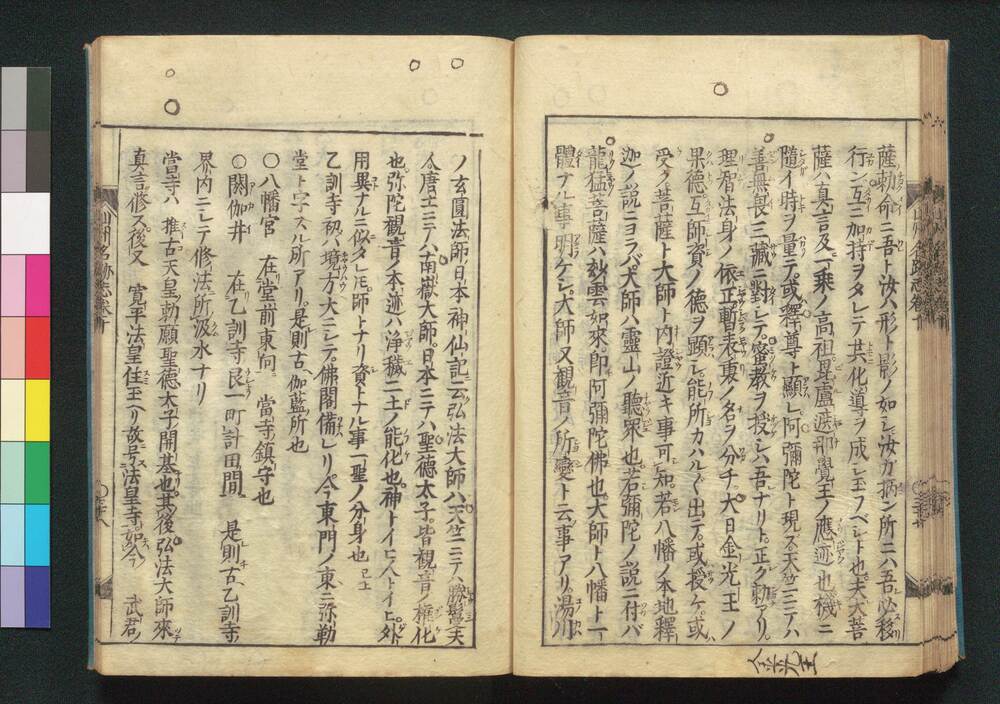 薩勅命ニ吾ト汝ハ形ト影ノ如シ汝カ栖ン所ニハ吾必移
行ン互ニ加持ヲタレテ共化導ヲ成シ玉フベシト也夫大菩
薩ハ真言及一乗ノ高祖是盧遮那覺王ノ應迹也機ニ
隨イ時ヲ量テ或釋尊ト顯レ阿彌陀ト現ス天竺ニテハ
善無畏三藏ニ對シテ密教ヲ授シハ吾ナリト正ク勅アリ
理智法身ノ依正暫表東ノ名ヲ分チ大日金光王ノ
果德互師資ノ德ヲ顯シ能所カハル〱出テ或授ケ或
受ク菩薩ト大師ト内證近キ事可知若八幡ノ本地釋
迦ノ説ニヨラバ大師ハ靈山ノ聽衆也若彌陀ノ説ニ付バ
龍猛菩薩ハ妙雲如來即阿彌陀佛也大師ト八幡ト一
體ナル事明ケシ大師又觀音ノ所變ト云事アリ湯川
金光王
ノ玄圓法師日本神仙記ニ云弘法大師ハ天竺ニテハ勝鬘夫
人唐土ニテハ南嶽大師日本ニテハ聖德太子皆觀音ノ權化
也弥陀觀音ノ本迹ハ浄穢二土ノ能化也神トイヒ人トイヒ外
用異ナルニ似タレ𪜈師トナリ資トナル事一聖ノ分身也已上
乙訓寺初ハ境方大ニシテ佛閣備レリ今東門ノ東ニ弥勒
堂ト字スル所アリ是則古伽藍所也
〇八幡宮 在堂前東向 當寺鎮守也
〇閼伽井 在乙訓寺艮一町計田間 是則古乙訓寺
界内ニシテ修法所汲水ナリ
當寺ハ 推古天皇勅願聖德太子開基也其後弘法大師來
真言修ス後又 寛平法皇住玉ヘリ故号法皇寺如今 武君